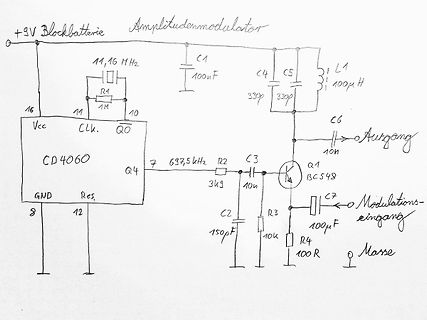 +9V Blockbatterie
Amplitudenmodulator
11,16 MHz
R1
1M
C1
100nF
C4
330p
C5
330p
L1
100µH
16
11
10
Vcc
Clk.
Q0
CD4060
Q4
7
697,5kHz
R2
3k9
C3
10n
Q1
BC548
C6
10n
Ausgang
GND
Res.
8
12
C2
150pF
R3
10k
C7
100µF
Modulations-
eingang
R4
100R
Masse